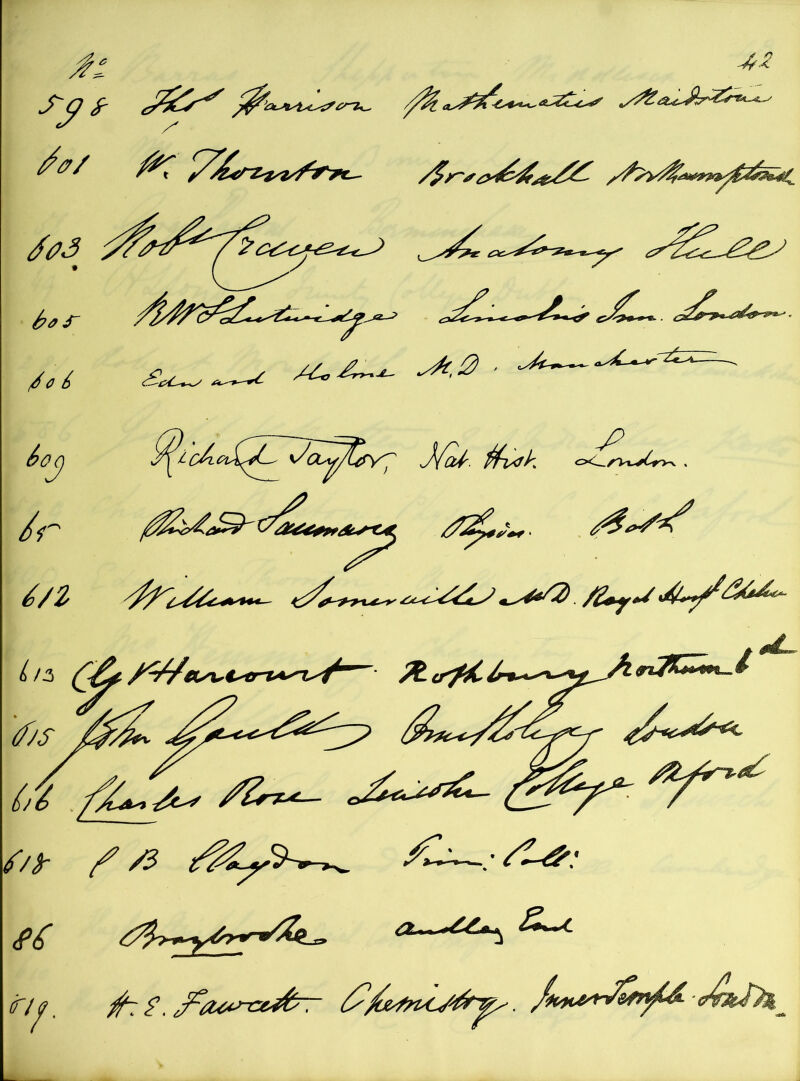 No 42
598 Thos Harrison Mathematics Maidstone
601 W. Thornton Brockhall Northamptonsh
603 Robt Craven Anatomy Hull
605 RWS Lutwidge Lincoln's Inn. London.
606 Edward Holme M.D. Manchester
609 Richard Taylor, Nat. Hist. London.
65 Richard Saumarez Physics. Bath
612 William Somerville MD. Royal Hospl Chelsea
613 C G V Harcourt Rothbury Northumbd
615 John Gould Ornithology London
616 Charles Rose Lincoln College Oxford
618 C B Claydon Trin: Coll:
86 Braybrooke Audley End
619. H. E. Fawcett. Chemistry. Inner Temple London